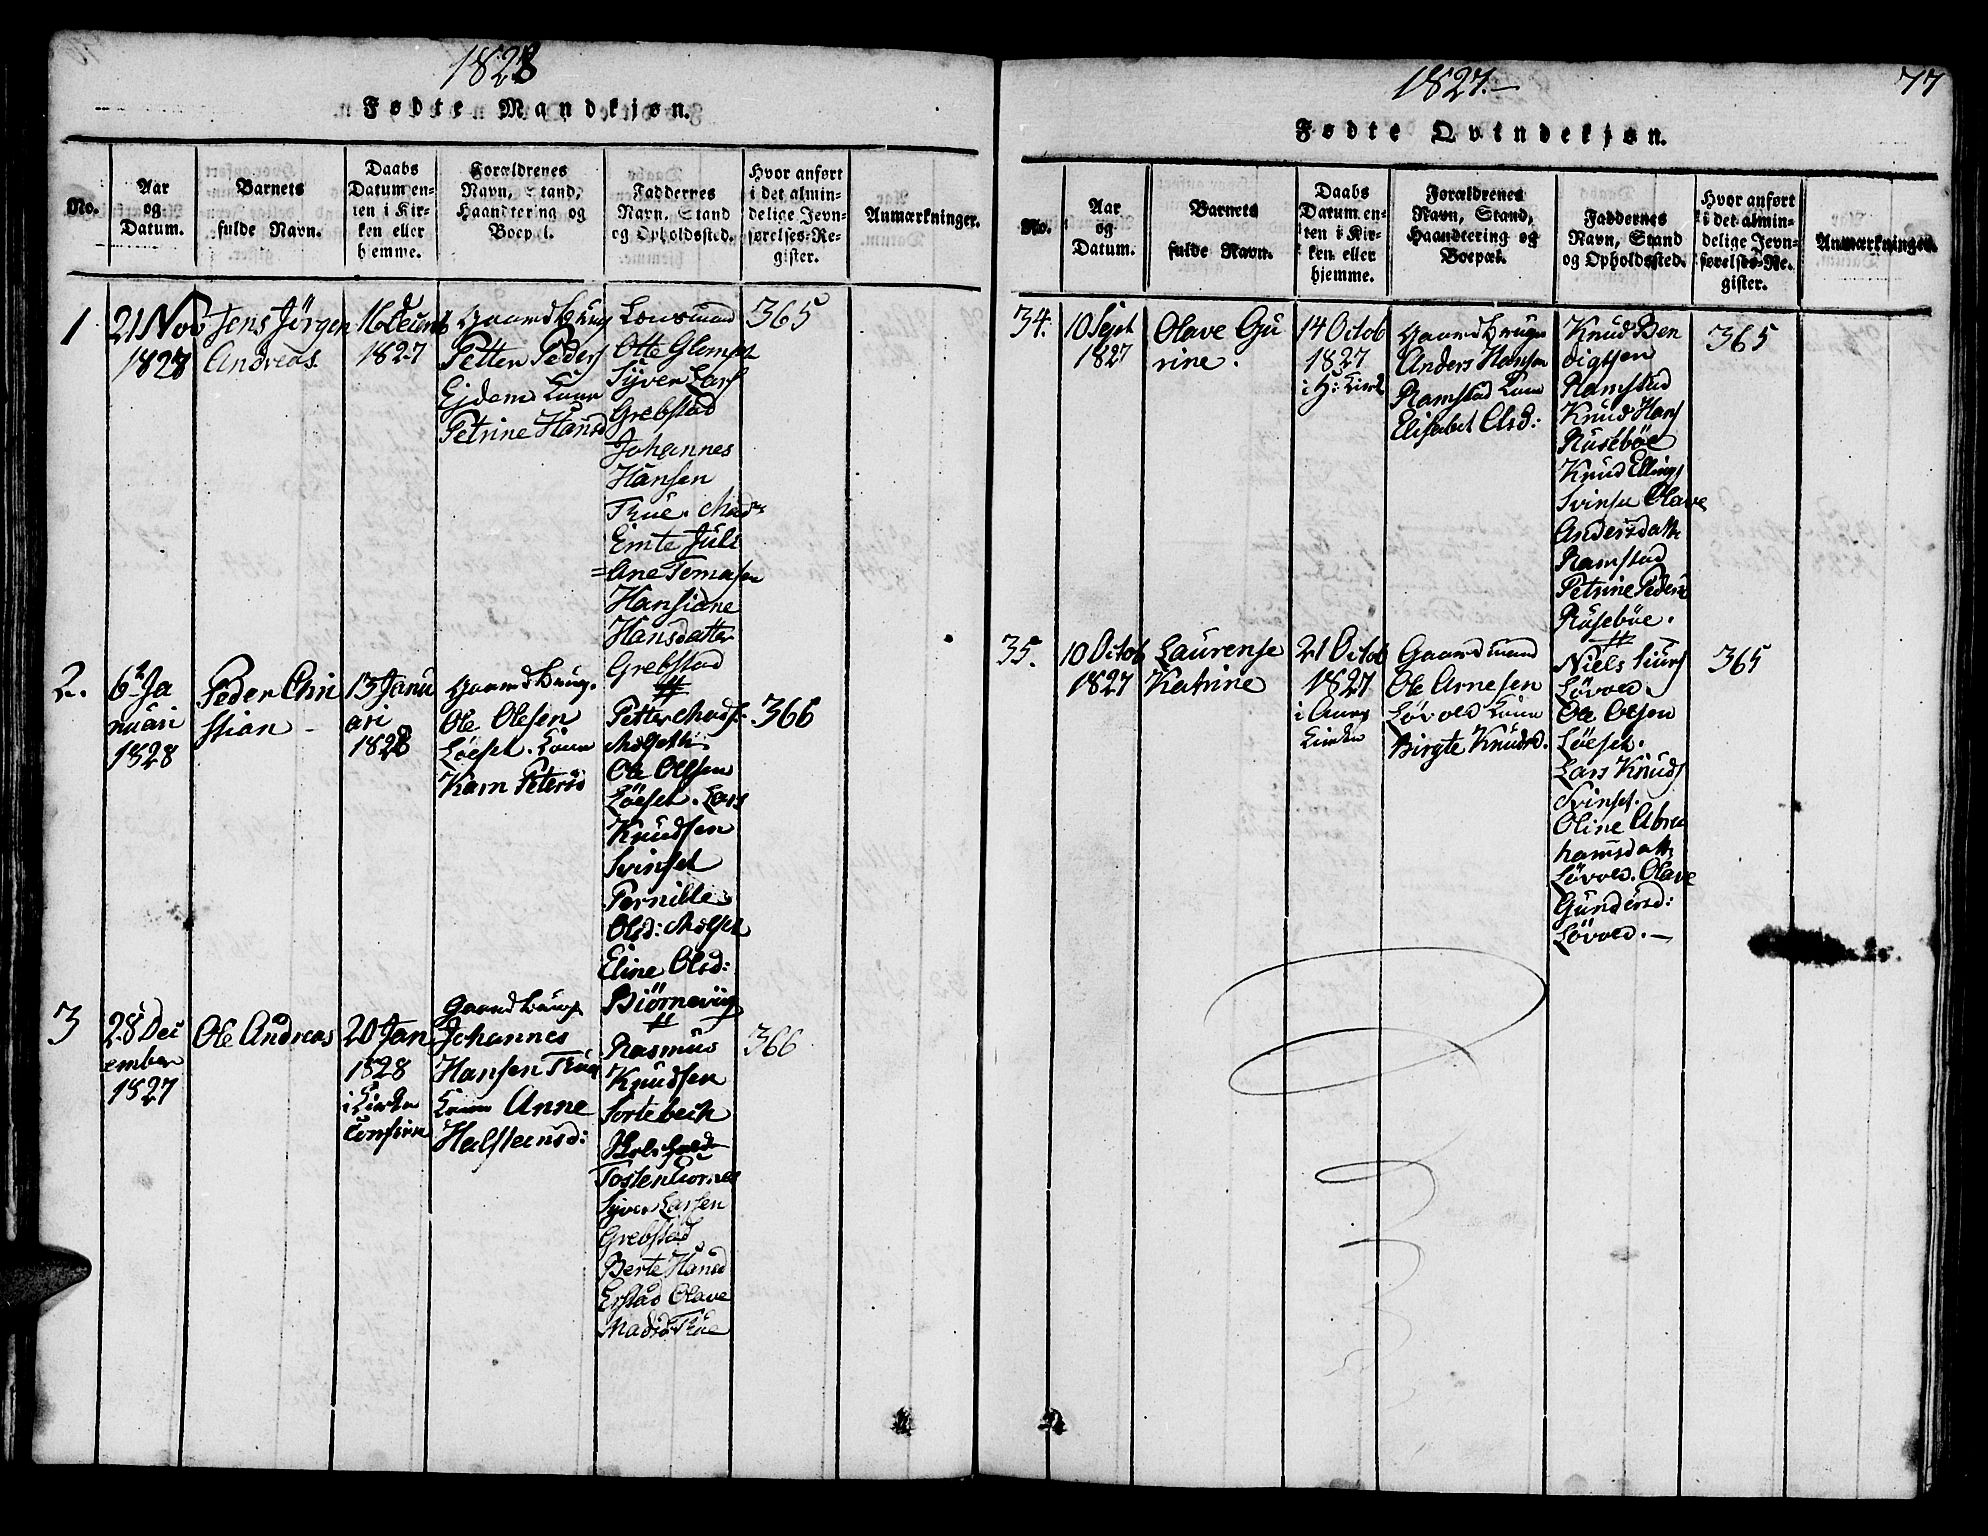 1828
Fødte Mandkjøn.
No.
Aar
og
Datum.
Barnets
fulde Navn.
Daabs
Datum en-
ten i Kir-
ken eller
hjemme.
Forældrenes
Navn, Stand,
Haandtering og
Boepæl.
Faddernes
Navn, Stand
og Opholdssted.
Hvor anført
i det almin-
delige Jevn-
førelses-Re-
gister.
Anmærkninger.
1
21 Nov
1828
Jens Jörgen
Andreas.
16 Decemb
1827
Gaardbrug
Petter Peders
Ejdem Kone
Petrine Hansd
Lensmand
Otte Glemset
Syver Lars
Grebstad
Johannes
Hansen
True. Mad
Emte Juls
Ane Tomasen
Hansiane
Hansdatter
Grebstad
365
2.
6 Ja
nuari
1828
Peder Chri
stian
13 Janu
ari
1828
Gaardbrug.
Ole Olesen
Løeset. Kone
Karn Petersd
Petter Mads:
Molset
Ole Olssen
Løeset. Lars
Knudsen
Svinset
Pernille
Olsd: Molset
Eline Olsd:
Biörnevig
366
3
28 Dec
ember
1827
Ole Andreas
20 Jan
1828
i Kirken
confirm
Gaardbrug
Johannes
Hansen True
Kone Anne
Halsteinsd:
Rasmus
Knudsen
Sortebech
Tosten
Syver Larsen
Grebstad
Berte Hansd
Erstad Olave
Madsd True
366
1827.
77
Fødte Qvindekjøn.
No.
Aar
og
Datum.
Barnets
fulde Navn.
Daabs
Datum en-
ten i Kir-
ken eller
hjemme.
Forældrenes
Navn, Stand,
Haandtering og
Boepæl.
Faddernes
Navn, Stand
og Opholdssted.
Hvor anført
i det almin-
delige Jevn-
førelses-Re-
gister.
Anmærkninger.
34.
10 Sept
1827
Olave Gu
rine.
14 Octob
1827
i H: Kirk
Gaardbruger
Anders Hansen
Ramstad Kone
Elisabet Elsd:
Knud Ben
digtsen
Ramstad
Knud Hans
Rusebøe
Knud Ellings
Svinse Olave
Andersdatt
Ramstad
Petrine Peders
Rusebøe.
365
35.
10 Octob
1827
Laurense
Katrine
21 Octob
1827
i Aure
Kirke
Gaardmand
Ole Arnesen
Løvold Kone
Birgte Knudsd.
Niels Siurs
Løvold
Ole Olsen
Løeset.
Lars Knuds
Svinset.
Oline Abra
hamsdatt
Løvold. Olave
Gundersd:
Løvold.
365